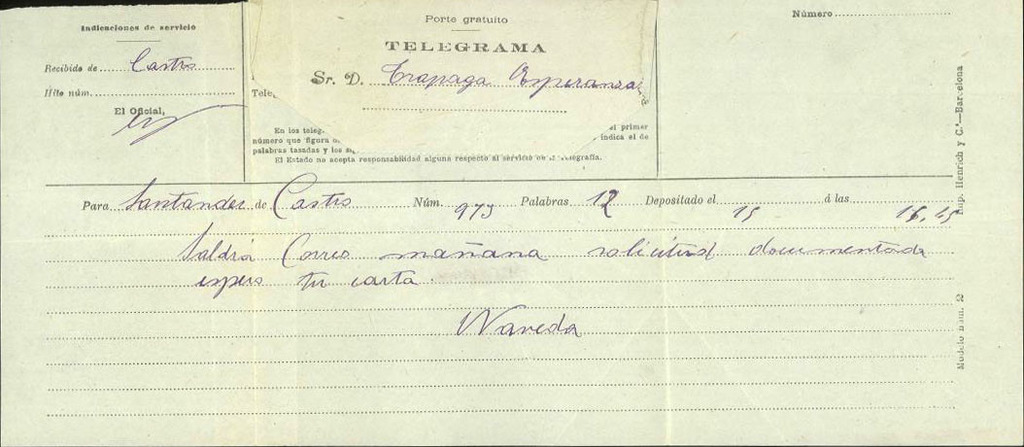 Indicaciones de servicio
Recibido de Castro
Hilo núm.
El Oficial,
Porte gratuito
TELEGRAMA
Sr. D. Trapaga Esperanza
Tele
En los teleg el primer
número que figura indica el de
palabras tasadas y los
El Estado no acepta responsabilidad alguna respecto al servicio de la telegrafía.
Número
Para Santander de Castro Núm. 973 Palabras 12 Depositado el 15 á las 16,45
Saldrá Correo mañana solicitud documentada
espero tu carta
Naveda
Imp. Henrich y C.ª—Barcelona
Modelo núm. 52